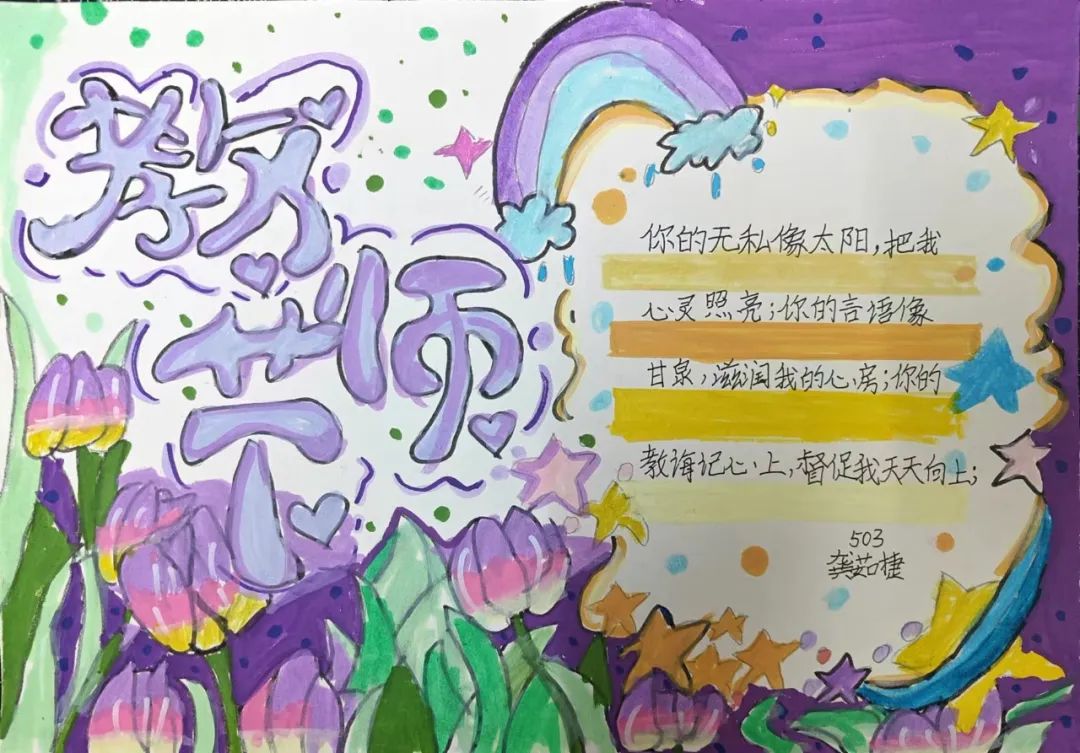 教师
节
你的无私像太阳,把我
心灵照亮;你的言语像
甘泉,滋润我的心房;你的
教诲记心上,督促我天天向上;
503
龚茹捷